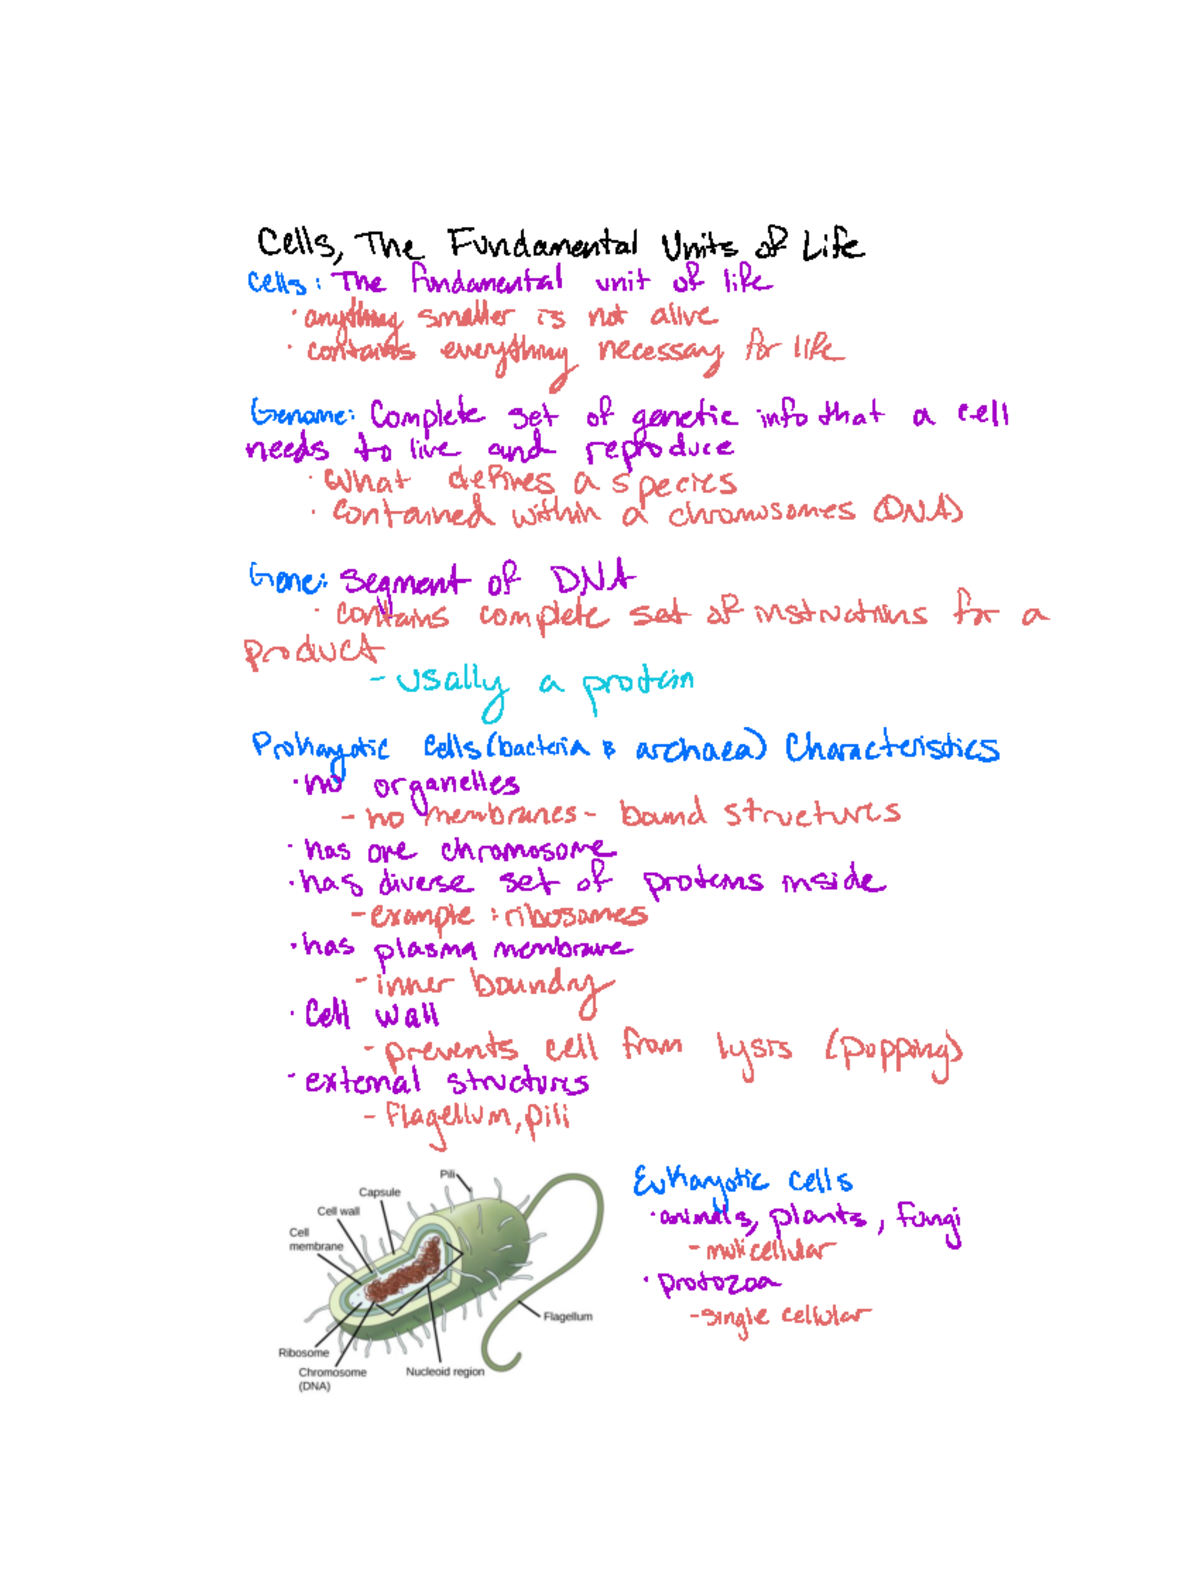 Cells, The Fundamental Units of Life
Cells: The fundamental unit of life
· anything smaller is not alive
· contains everything necessary for life
Genome: Complete set of genetic info that a cell
needs to live and reproduce
· What defines a species
· contained within a chromosomes (DNA)
Gene: segment of DNA
· contains complete set of instructions for a
product
- usally a protein
Prokayotic Cells (bacteria & archaea) Characteristics
· no organelles
- no membranes - bound structures
· has one chromosome
· has diverse set of proteins inside
- example : ribosomes
· has plasma membrane
- inner boundry
· Cell wall
- prevents cell from lysis (popping)
· external structures
- Flagellum, pili
Pili
Capsule
Cell wall
Cell
membrane
Ribosome
Chromosome
(DNA)
Nucleoid region
Flagellum
Eukayotic cells
· animals, plants, fungi
- multicellular
· protozoa
- single cellular